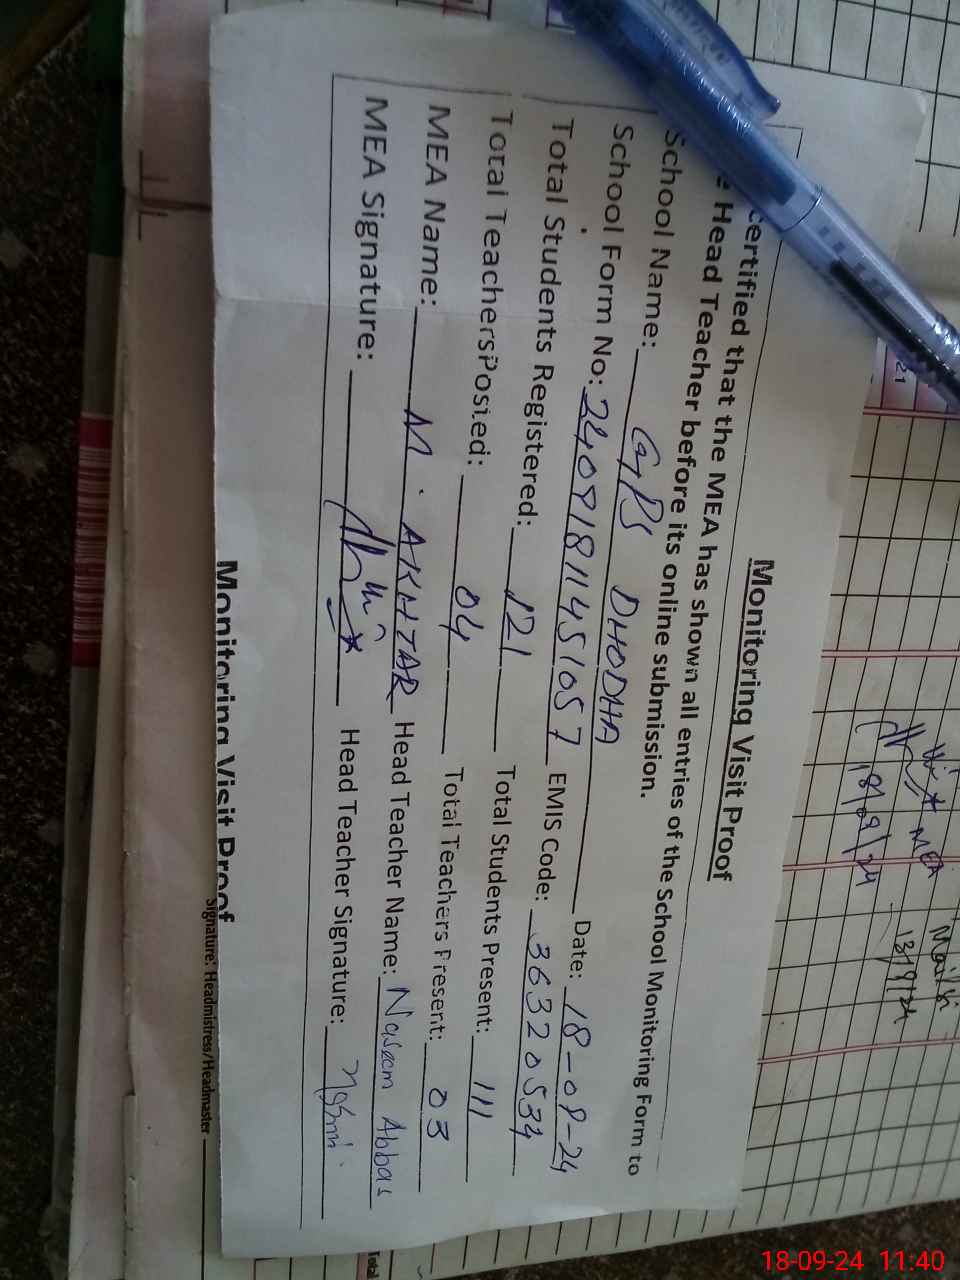 Monitoring Visit Proof
certified that the MEA has shown all entries of the School Monitoring Form to
Head Teacher before its online submission.
School Name: GPS DHODHA Date: 18-09-24
School Form No: 24091811451057 EMIS Code: 36320534
Total Students Registered: 121 Total Students Present: 111
Total Teachers Posted: 04 Total Teachers Present: 03
MEA Name: M. AKHTAR Head Teacher Name: Naseem Abbas
MEA Signature: Head Teacher Signature:
Monitoring Visit Proof
Signature: Headmistress/Headmaster
Total
21
MEA
18/09/24
13/9/24
18-09-24 11:40